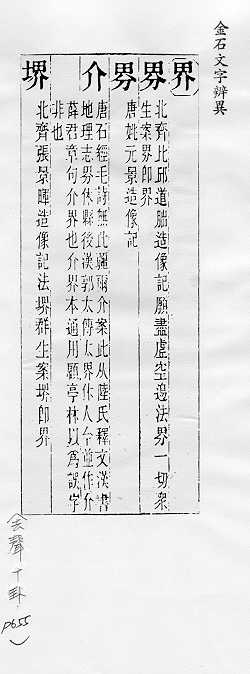 金石文字辨異
界
界 北齊比邱道朏造像記願盡虛空邊法界一切衆
生案界即界
畍 唐姚元景造像記
介 唐石經毛詩無此疆爾介案此从陸氏釋文漢書
地理志界休縣後漢郭太傳太界休人今並作介
薛君章句介界也介界本通用顧亭林以爲誤字
非也
堺 北齊張景暉造像記法堺群生案堺即界
去聲十卦
p655